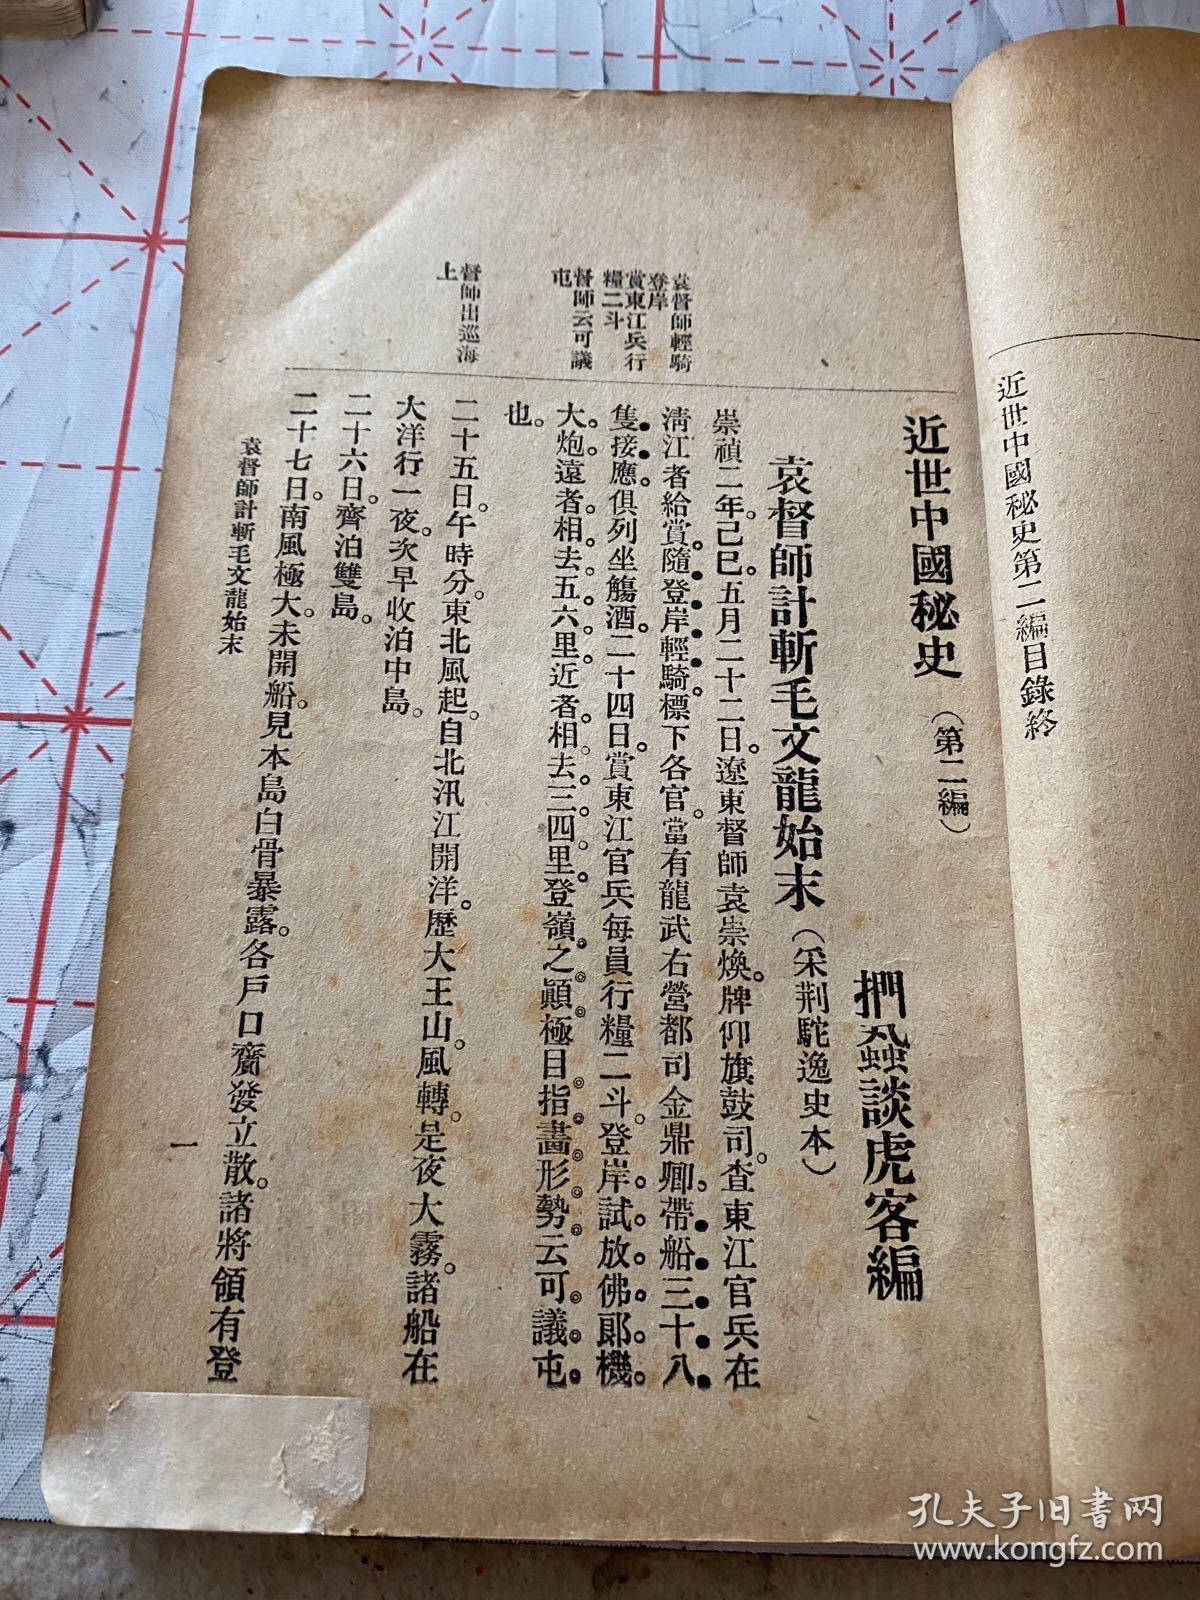 近世中國秘史第二編目錄終
近世中國秘史（第二編）
捫蝨談虎客編
袁督師計斬毛文龍始末（采荆駝逸史本）
袁督師輕騎
登岸
賞東江兵行
糧二斗
督師云可議
屯
督師出巡海
上
崇禎二年。己巳。五月二十二日。遼東督師袁崇煥。牌仰旗鼓司。查東江官兵在
淸江者給賞。隨登岸輕騎。標下各官。當有龍武右營都司金鼎卿。帶船三十八
隻。接應。俱列坐觴酒。二十四日。賞東江官兵每員行糧二斗。登岸試放佛郞機。
大炮。遠者相去五六里。近者相去三四里。登嶺之顚。極目指畫形勢。云可議屯
也。
二十五日。午時分。東北風起。自北汛江開洋。歷大王山。風轉。是夜大霧。諸船在
大洋行一夜。次早收泊中島。
二十六日。齊泊雙島。
二十七日。南風極大。未開船。見本島白骨暴露。各戶口齎發立散。諸將領有登
袁督師計斬毛文龍始末
一
孔夫子旧书网
www.kongfz.com